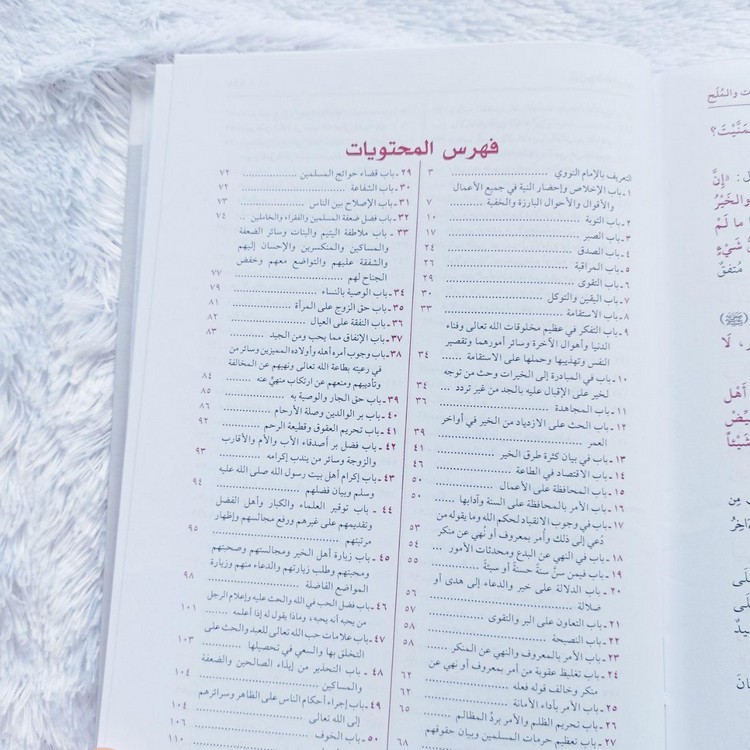 فهرس المحتويات
التعريف بالإمام النووي ........ ٣
١ ـ باب الإخلاص وإحضار النية في جميع الأعمال
والأقوال والأحوال البارزة والخفية ........ ٧
٢ ـ باب التوبة ........ ١٠
٣ ـ باب الصبر ........ ١٧
٤ ـ باب الصدق ........ ٢٤
٥ ـ باب المراقبة ........ ٢٦
٦ ـ باب التقوى ........ ٢٩
٧ ـ باب اليقين والتوكل ........ ٣٠
٨ ـ باب الاستقامة ........ ٣٣
٩ ـ باب التفكر في عظيم مخلوقات الله تعالى وفناء
الدنيا وأهوال الآخرة وسائر أمورهما وتقصير
النفس وتهذيبها وحملها على الاستقامة ........ ٣٤
١٠ ـ باب في المبادرة إلى الخيرات وحث من توجه
لخير على الإقبال عليه بالجد من غير تردد ... ٣٤
١١ ـ باب المجاهدة ........ ٣٦
١٢ ـ باب الحث على الازدياد من الخير في أواخر
العمر ........ ٣٩
١٣ ـ باب في بيان كثرة طرق الخير ........ ٤١
١٤ ـ باب الاقتصاد في الطاعة ........ ٤٦
١٥ ـ باب المحافظة على الأعمال ........ ٥٠
١٦ ـ باب الأمر بالمحافظة على السنة وآدابها ... ٥٠
١٧ ـ باب في وجوب الانقياد لحكم الله وما يقوله من
دُعي إلى ذلك وأُمر بمعروف أو نُهي عن منكر ٥٣
١٨ ـ باب في النهي عن البدع ومحدثات الأمور ... ٥٤
١٩ ـ باب فيمن سنَّ سنةً حسنةً أو سيئةً ........ ٥٥
٢٠ ـ باب الدلالة على خير والدعاء إلى هدى أو
ضلالة ........ ٥٦
٢١ ـ باب التعاون على البر والتقوى ........ ٥٧
٢٢ ـ باب النصيحة ........ ٥٨
٢٣ ـ باب الأمر بالمعروف والنهي عن المنكر ... ٥٨
٢٤ ـ باب تغليظ عقوبة من أمر بمعروف أو نهي عن
منكر وخالف قوله فعله ........ ٦٢
٢٥ ـ باب الأمر بأداء الأمانة ........ ٦٢
٢٦ ـ باب تحريم الظلم والأمر بردِّ المظالم ... ٦٥
٢٧ ـ باب تعظيم حرمات المسلمين وبيان حقوقهم
٦٨
٢٩ ـ باب قضاء حوائج المسلمين ........ ٧٢
٣٠ ـ باب الشفاعة ........ ٧٢
٣١ ـ باب الإصلاح بين الناس ........ ٧٣
٣٢ ـ باب فضل ضعفة المسلمين والفقراء والخاملين .. ٧٤
٣٣ ـ باب ملاطفة اليتيم والبنات وسائر الضعفة
والمساكين والمنكسرين والإحسان إليهم
والشفقة عليهم والتواضع معهم وخفض
الجناح لهم ........ ٧٧
٣٤ ـ باب الوصية بالنساء ........ ٧٩
٣٥ ـ باب حق الزوج على المرأة ........ ٨١
٣٦ ـ باب النفقة على العيال ........ ٨٢
٣٧ ـ باب الإنفاق مما يحب ومن الجيد ........ ٨٣
٣٨ ـ باب وجوب أمره أهله وأولاده المميزين وسائر من
في رعيته بطاعة الله تعالى ونهيهم عن المخالفة
وتأديبهم ومنعهم عن ارتكاب منهيٍّ عنه ........ ٨٤
٣٩ ـ باب حق الجار والوصية به ........ ٨٥
٤٠ ـ باب بر الوالدين وصلة الأرحام ........ ٨٦
٤١ ـ باب تحريم العقوق وقطيعة الرحم ........ ٩٢
٤٢ ـ باب فضل بر أصدقاء الأب والأم والأقارب
والزوجة وسائر من يندب إكرامه ........ ٩٣
٤٣ ـ باب إكرام أهل بيت رسول الله صلى الله عليه
وسلم وبيان فضلهم ........ ٩٤
٤٤ ـ باب توقير العلماء والكبار وأهل الفضل
وتقديمهم على غيرهم ورفع مجالسهم وإظهار
مرتبتهم ........ ٩٥
٤٥ ـ باب زيارة أهل الخير ومجالستهم وصحبتهم
ومحبتهم وطلب زيارتهم والدعاء منهم وزيارة
المواضع الفاضلة ........ ٩٨
٤٦ ـ باب فضل الحب في الله والحث عليه وإعلام الرجل
من يحبه أنه يحبه، وماذا يقول له إذا أعلمه ... ١٠١
٤٧ ـ باب علامات حب الله تعالى للعبد والحث على
التخلق بها والسعي في تحصيلها ........ ١٠٣
٤٨ ـ باب التحذير من إيذاء الصالحين والضعفة
والمساكين ........ ١٠٤
٤٩ ـ باب إجراء أحكام الناس على الظاهر وسرائرهم
إلى الله تعالى ........ ١٠٤
٥٠ ـ باب الخوف ........ ١٠٦
١١٠
ت والمُلَح
مَنَّيْتَ؟
ل: «إِنَّ
والخَيْرُ
ما لَمْ
شَيْءٍ
متفقٌ
(ﷺ)
ر، لَا
أَهْل
شَيْئاً
مِن
لَّى
لَى
انَ